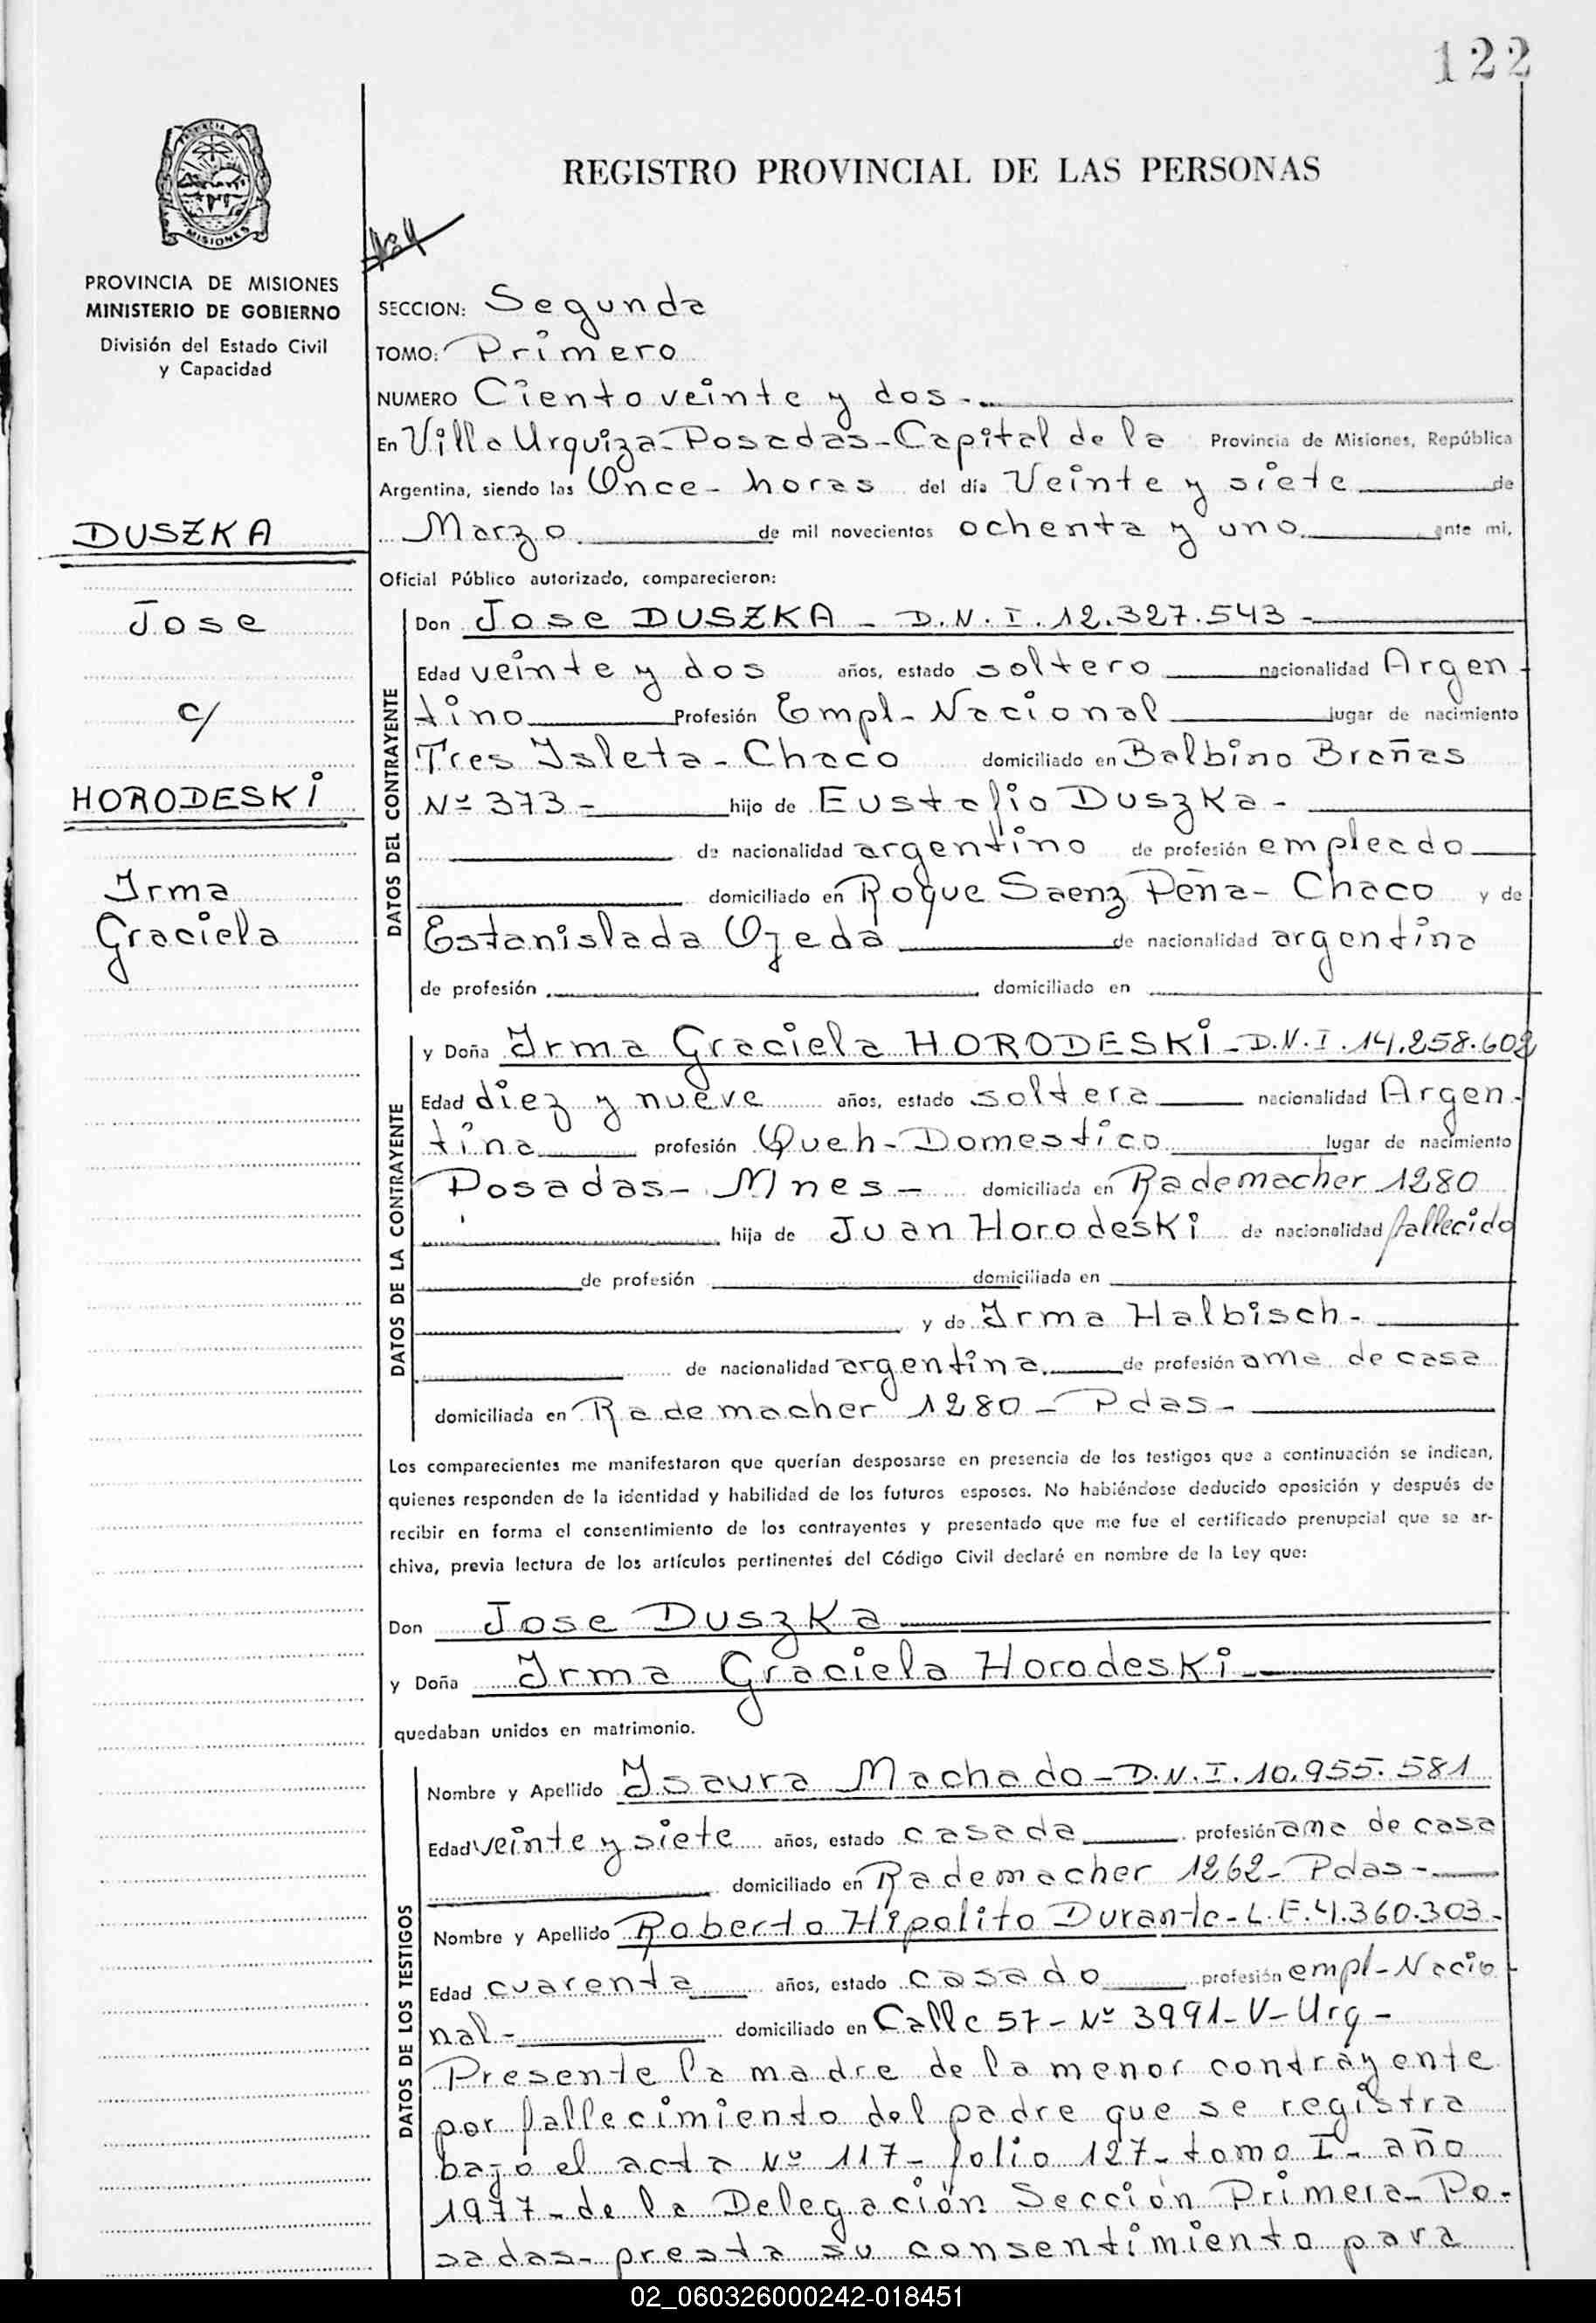 122
PROVINCIA DE MISIONES
MINISTERIO DE GOBIERNO
División del Estado Civil
y Capacidad
DUSZKA
Jose
c/
HORODESKI
Irma
Graciela
REGISTRO PROVINCIAL DE LAS PERSONAS
SECCION: Segunda
TOMO: Primero
NUMERO Ciento veinte y dos -.
En Villa Urquiza-Posadas-Capital de la Provincia de Misiones, República
Argentina, siendo las Once- horas del día Veinte y siete de
Marzo de mil novecientos ochenta y uno ante mi,
Oficial Público autorizado, comparecieron:
DATOS DEL CONTRAYENTE
Don Jose DUSZKA - D.N.I. 12.327.543 -
Edad veinte y dos años, estado soltero nacionalidad Argen-
tino Profesión Empl-Nacional lugar de nacimiento
Tres Isleta - Chaco domiciliado en Balbino Brañas
Nº 373 - hijo de Eustafio Duszka -
de nacionalidad argentino de profesión empleado
domiciliado en Roque Saenz Peña - Chaco y de
Estanislada Ojeda de nacionalidad argentina
de profesión domiciliado en
DATOS DE LA CONTRAYENTE
y Doña Irma Graciela HORODESKI - D.N.I. 14.258.602
Edad diez y nueve años, estado soltera nacionalidad Argen-
tina profesión Queh-Domestico lugar de nacimiento
Posadas - Mnes - domiciliada en Rademacher 1280
hija de Juan Horodeski de nacionalidad fallecido
de profesión domiciliada en
y de Irma Halbisch -
de nacionalidad argentina de profesión ama de casa
domiciliada en Rademacher 1280 - Pdas -
Los comparecientes me manifestaron que querían desposarse en presencia de los testigos que a continuación se indican,
quienes responden de la identidad y habilidad de los futuros esposos. No habiéndose deducido oposición y después de
recibir en forma el consentimiento de los contrayentes y presentado que me fue el certificado prenupcial que se ar-
chiva, previa lectura de los artículos pertinentes del Código Civil declaré en nombre de la Ley que:
Don Jose Duszka
y Doña Irma Graciela Horodeski
quedaban unidos en matrimonio.
DATOS DE LOS TESTIGOS
Nombre y Apellido Isaura Machado - D.N.I. 10.955.581
Edad veinte y siete años, estado casada profesión ama de casa
domiciliado en Rademacher 1262 - Pdas -
Nombre y Apellido Roberto Hipolito Durante - L.E. 4.360.303 -
Edad cuarenta años, estado casado profesión empl-Nacio-
nal - domiciliado en Calle 57 - Nº 3991 - V - Urq -
Presente la madre de la menor contráyente
por fallecimiento del padre que se registra
bajo el acta Nº 117 - folio 127 - tomo I - año
1977 - de la Delegación Sección Primera - Po-
sadas - presta su consentimiento para
02_060326000242-018451